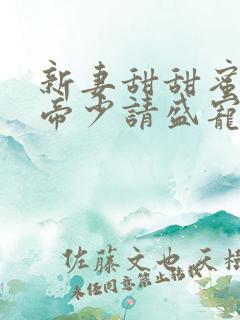 新妻甜甜蜜
帝少請盛寵
佐藤文也 天樹
未任同意禁止